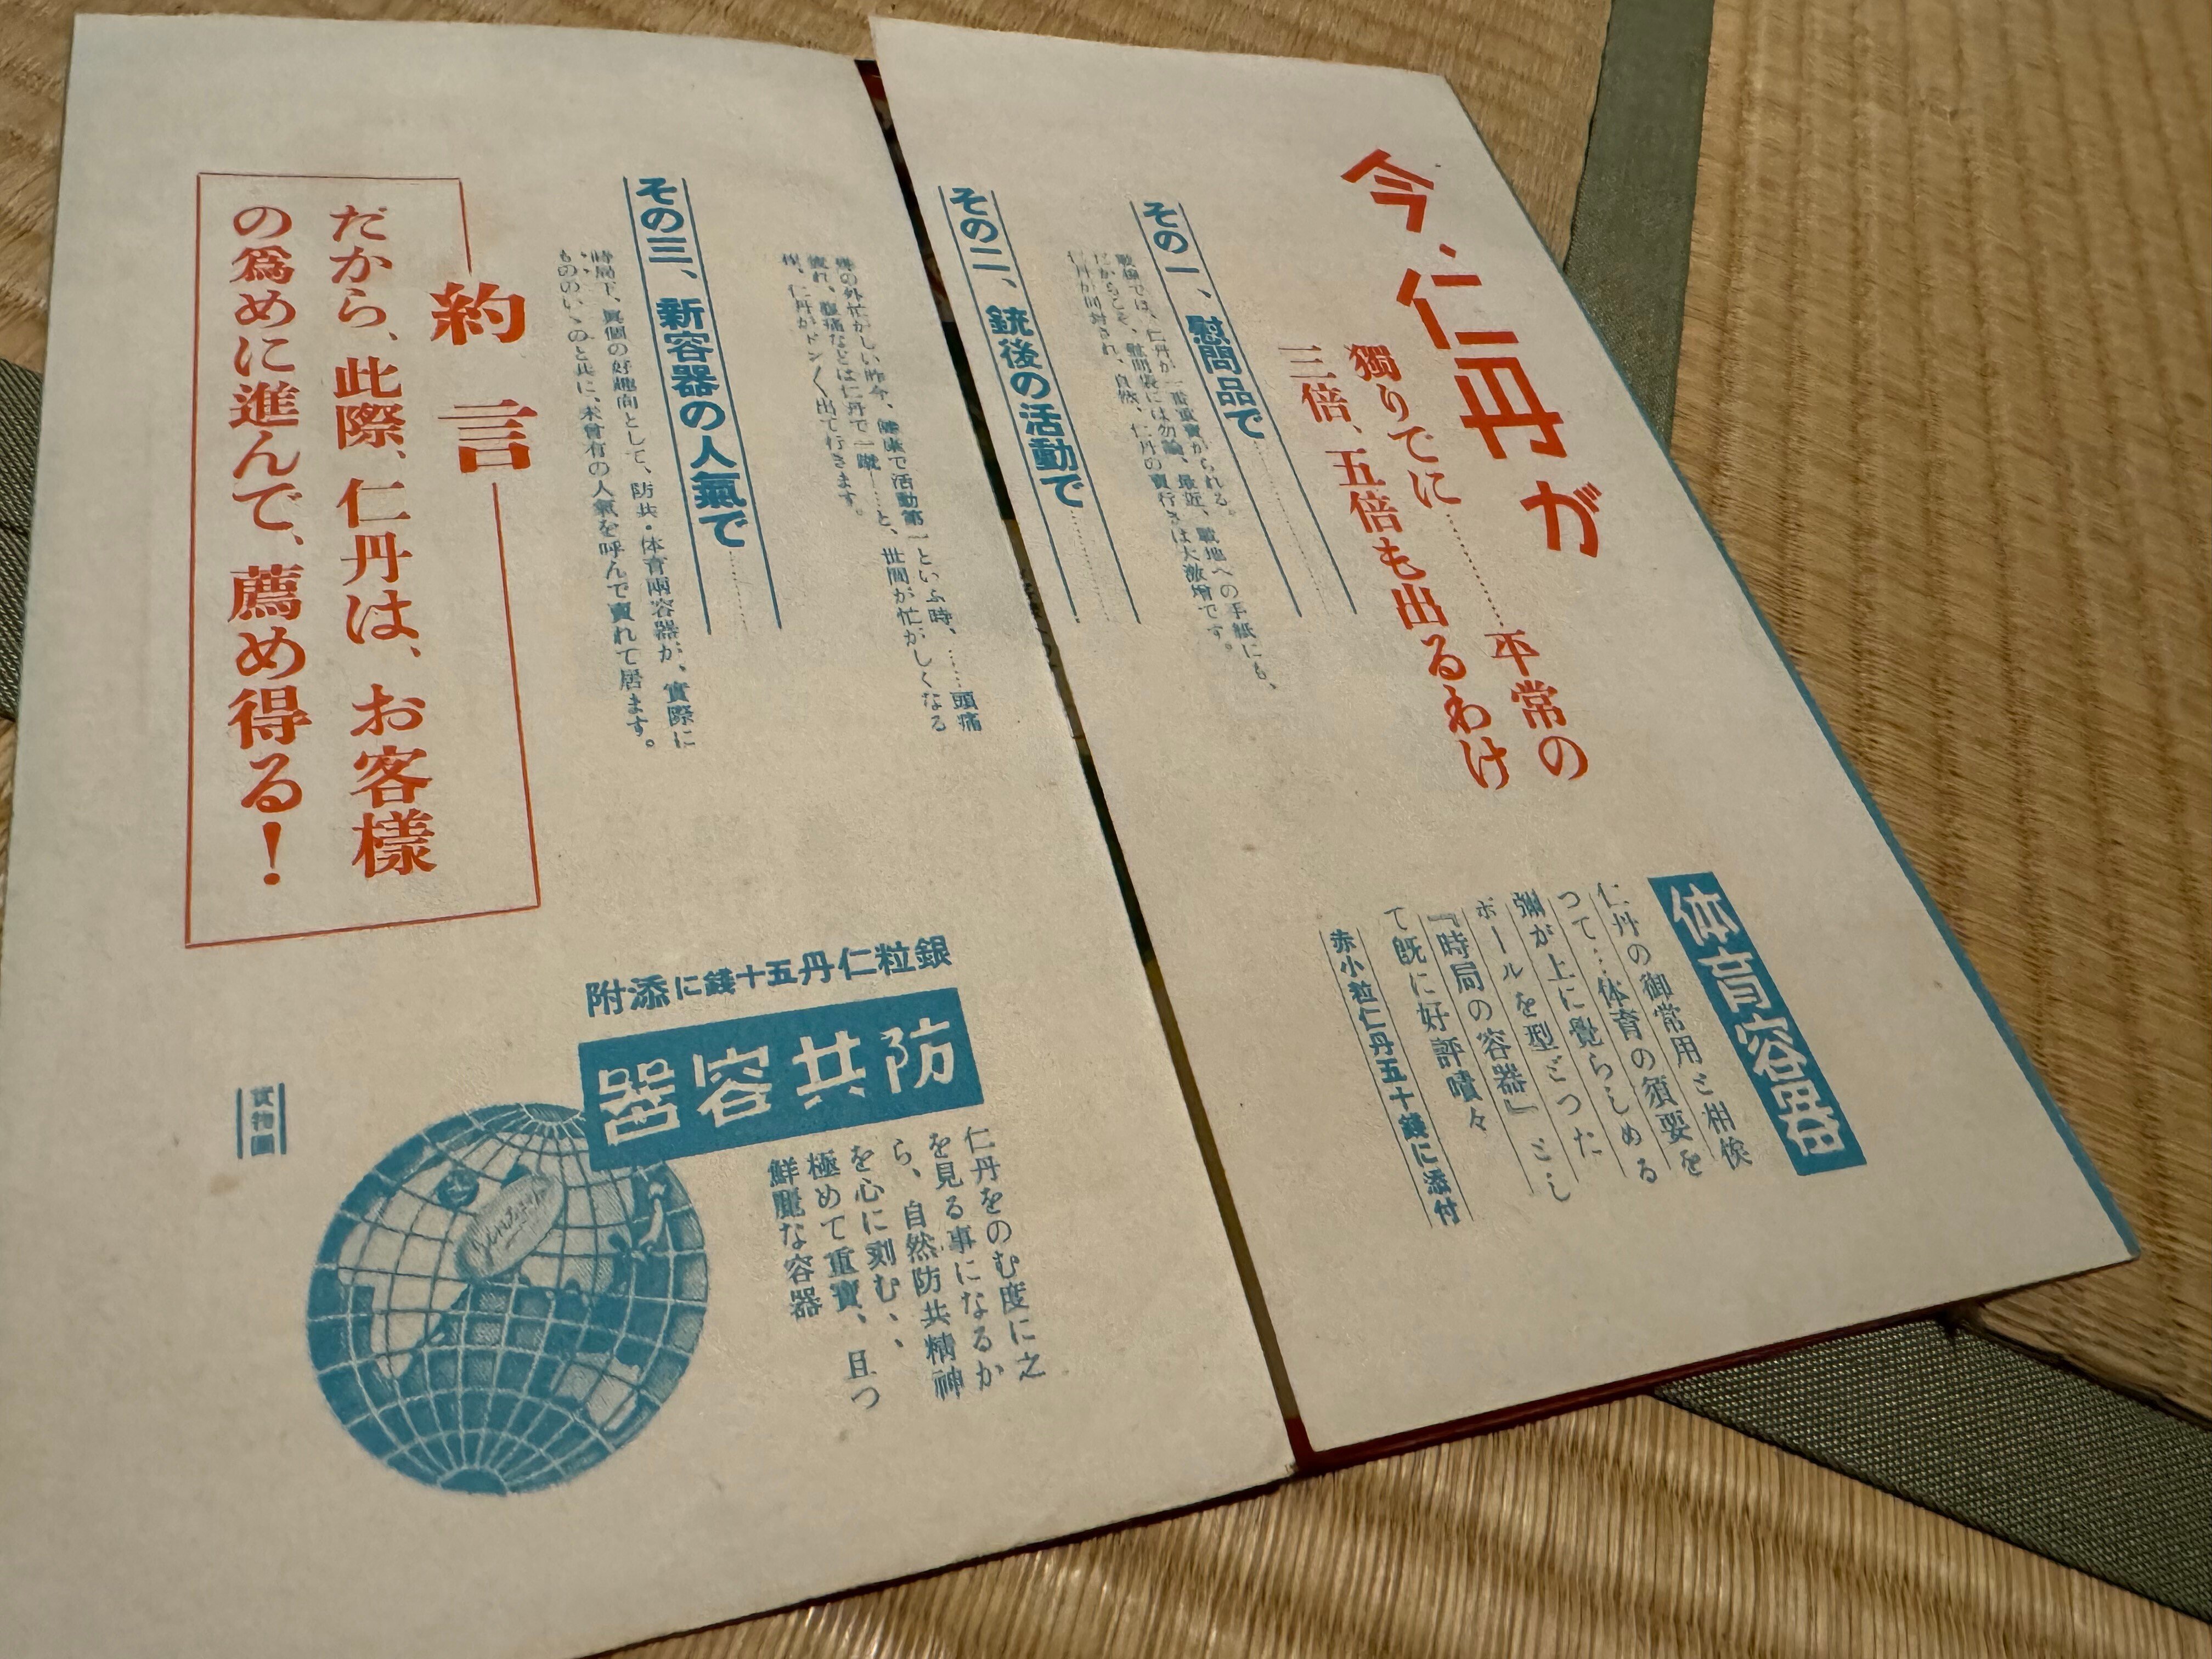 今、仁丹が
獨りでに……平常の
三倍、五倍も出るわけ
その一、慰問品で……
戰線では、仁丹が一番重寳がられる。
だからこそ、慰問袋には勿論、最近、戰地への手紙にも、
仁丹が同封され、自然、仁丹の賣行きは大激增です。
その二、銃後の活動で……
の外忙がしい昨今、健康で活動第一といふ時、……頭痛
腹痛などは仁丹で一蹴……と、世間が忙がしくなる
程、仁丹がドン〱出て行きます。
その三、新容器の人氣で……
時局下、眞個の好趣向として、防共・体育兩容器が、實際に
もののいゝのと共に、未曾有の人氣を呼んで賣れて居ます。
約言
だから、此際、仁丹は、お客樣
の爲めに進んで、薦め得る！
体育容器
仁丹の御常用と相俟
つて…体育の須要を
彌が上に覺らしめる
ボールを型どつた
『時局の容器』とし
て既に好評嘖々
赤小粒仁丹五十錢に添付
銀粒仁丹五十錢に添附
防共容器
仁丹をのむ度に之
を見る事になるか
ら、自然防共精神
を心に刻む、、
極めて重寳、且つ
鮮麗な容器
實物圖